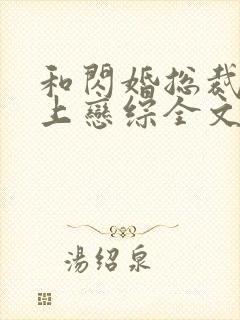 和閃婚总裁
上戀综全文
湯绍泉